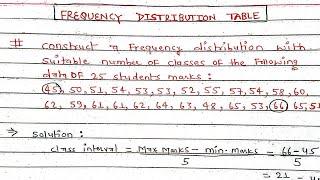 FREQUENCY DISTRIBUTION TABLE
# Construct a Frequency distribution with
suitable number of classes of the Following
data OF 25 students marks :
45, 50, 51, 54, 53, 53, 52, 55, 57, 54, 58, 60,
62, 59, 61, 61, 62, 64, 63, 48, 65, 53, 66, 65, 5
⇒ Solution :
class interval = Max Marks - min. marks = 66 - 45
5 5
= 21